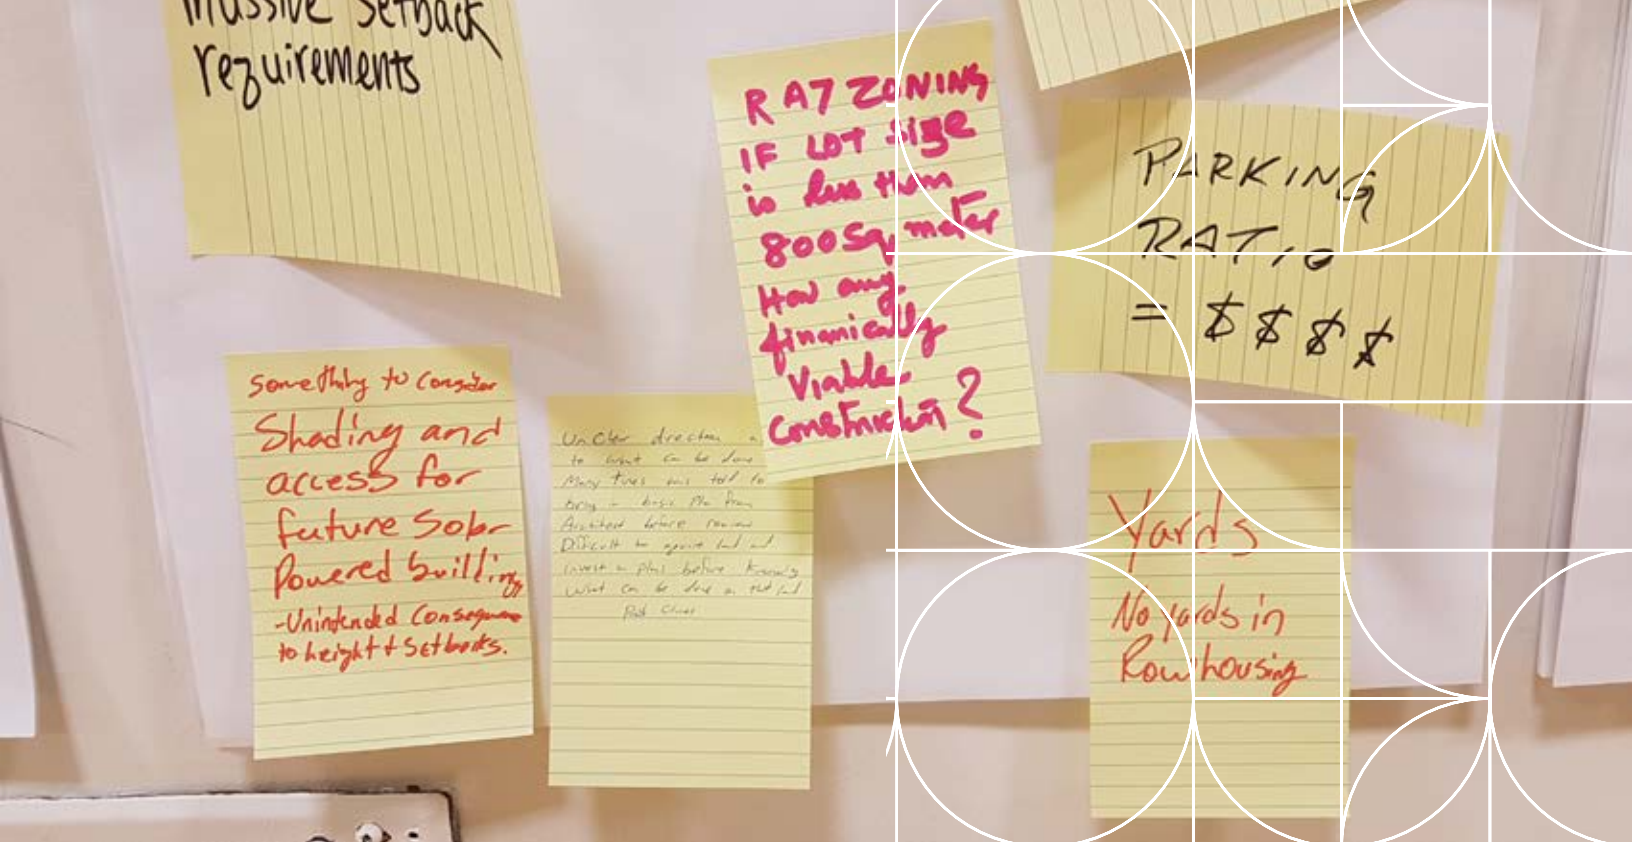 Massive Setback
requirements
RA7 ZONING
IF LOT Size
is less then
800 Sq. meter
How any
finanically
Viable
Construction?
PARKING
RATIO
= $ $ $ $
Something to Consider
Shading and
access for
future Solar
Powered building
-Unintended Consequence
to height + Setbacks.
Unclear direction
to what can be done
Many times was told to
bring a basic Plan from
Architect before review
Difficult to acquire land and
invest in plans before Knowing
What can be done on that land
Yards
No yards in
Rowhousing